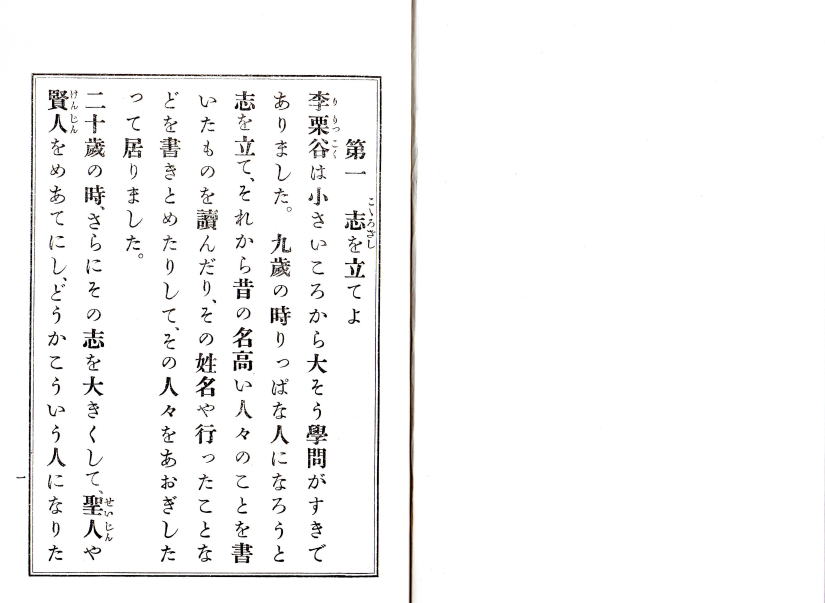 第一　志を立てよ
こゝろざし
李栗谷は小さいころから大そう學問がすきで
り りつ こく
ありました。　九歲の時りっぱな人になろうと
志を立て、それから昔の名高い人々のことを書
いたものを讀んだり、その姓名や行ったことな
どを書きとめたりして、その人々をあおぎした
って居りました。
二十歲の時、さらにその志を大きくして、聖人や
せいじん
賢人をめあてにし、どうかこういう人になりた
けんじん
一